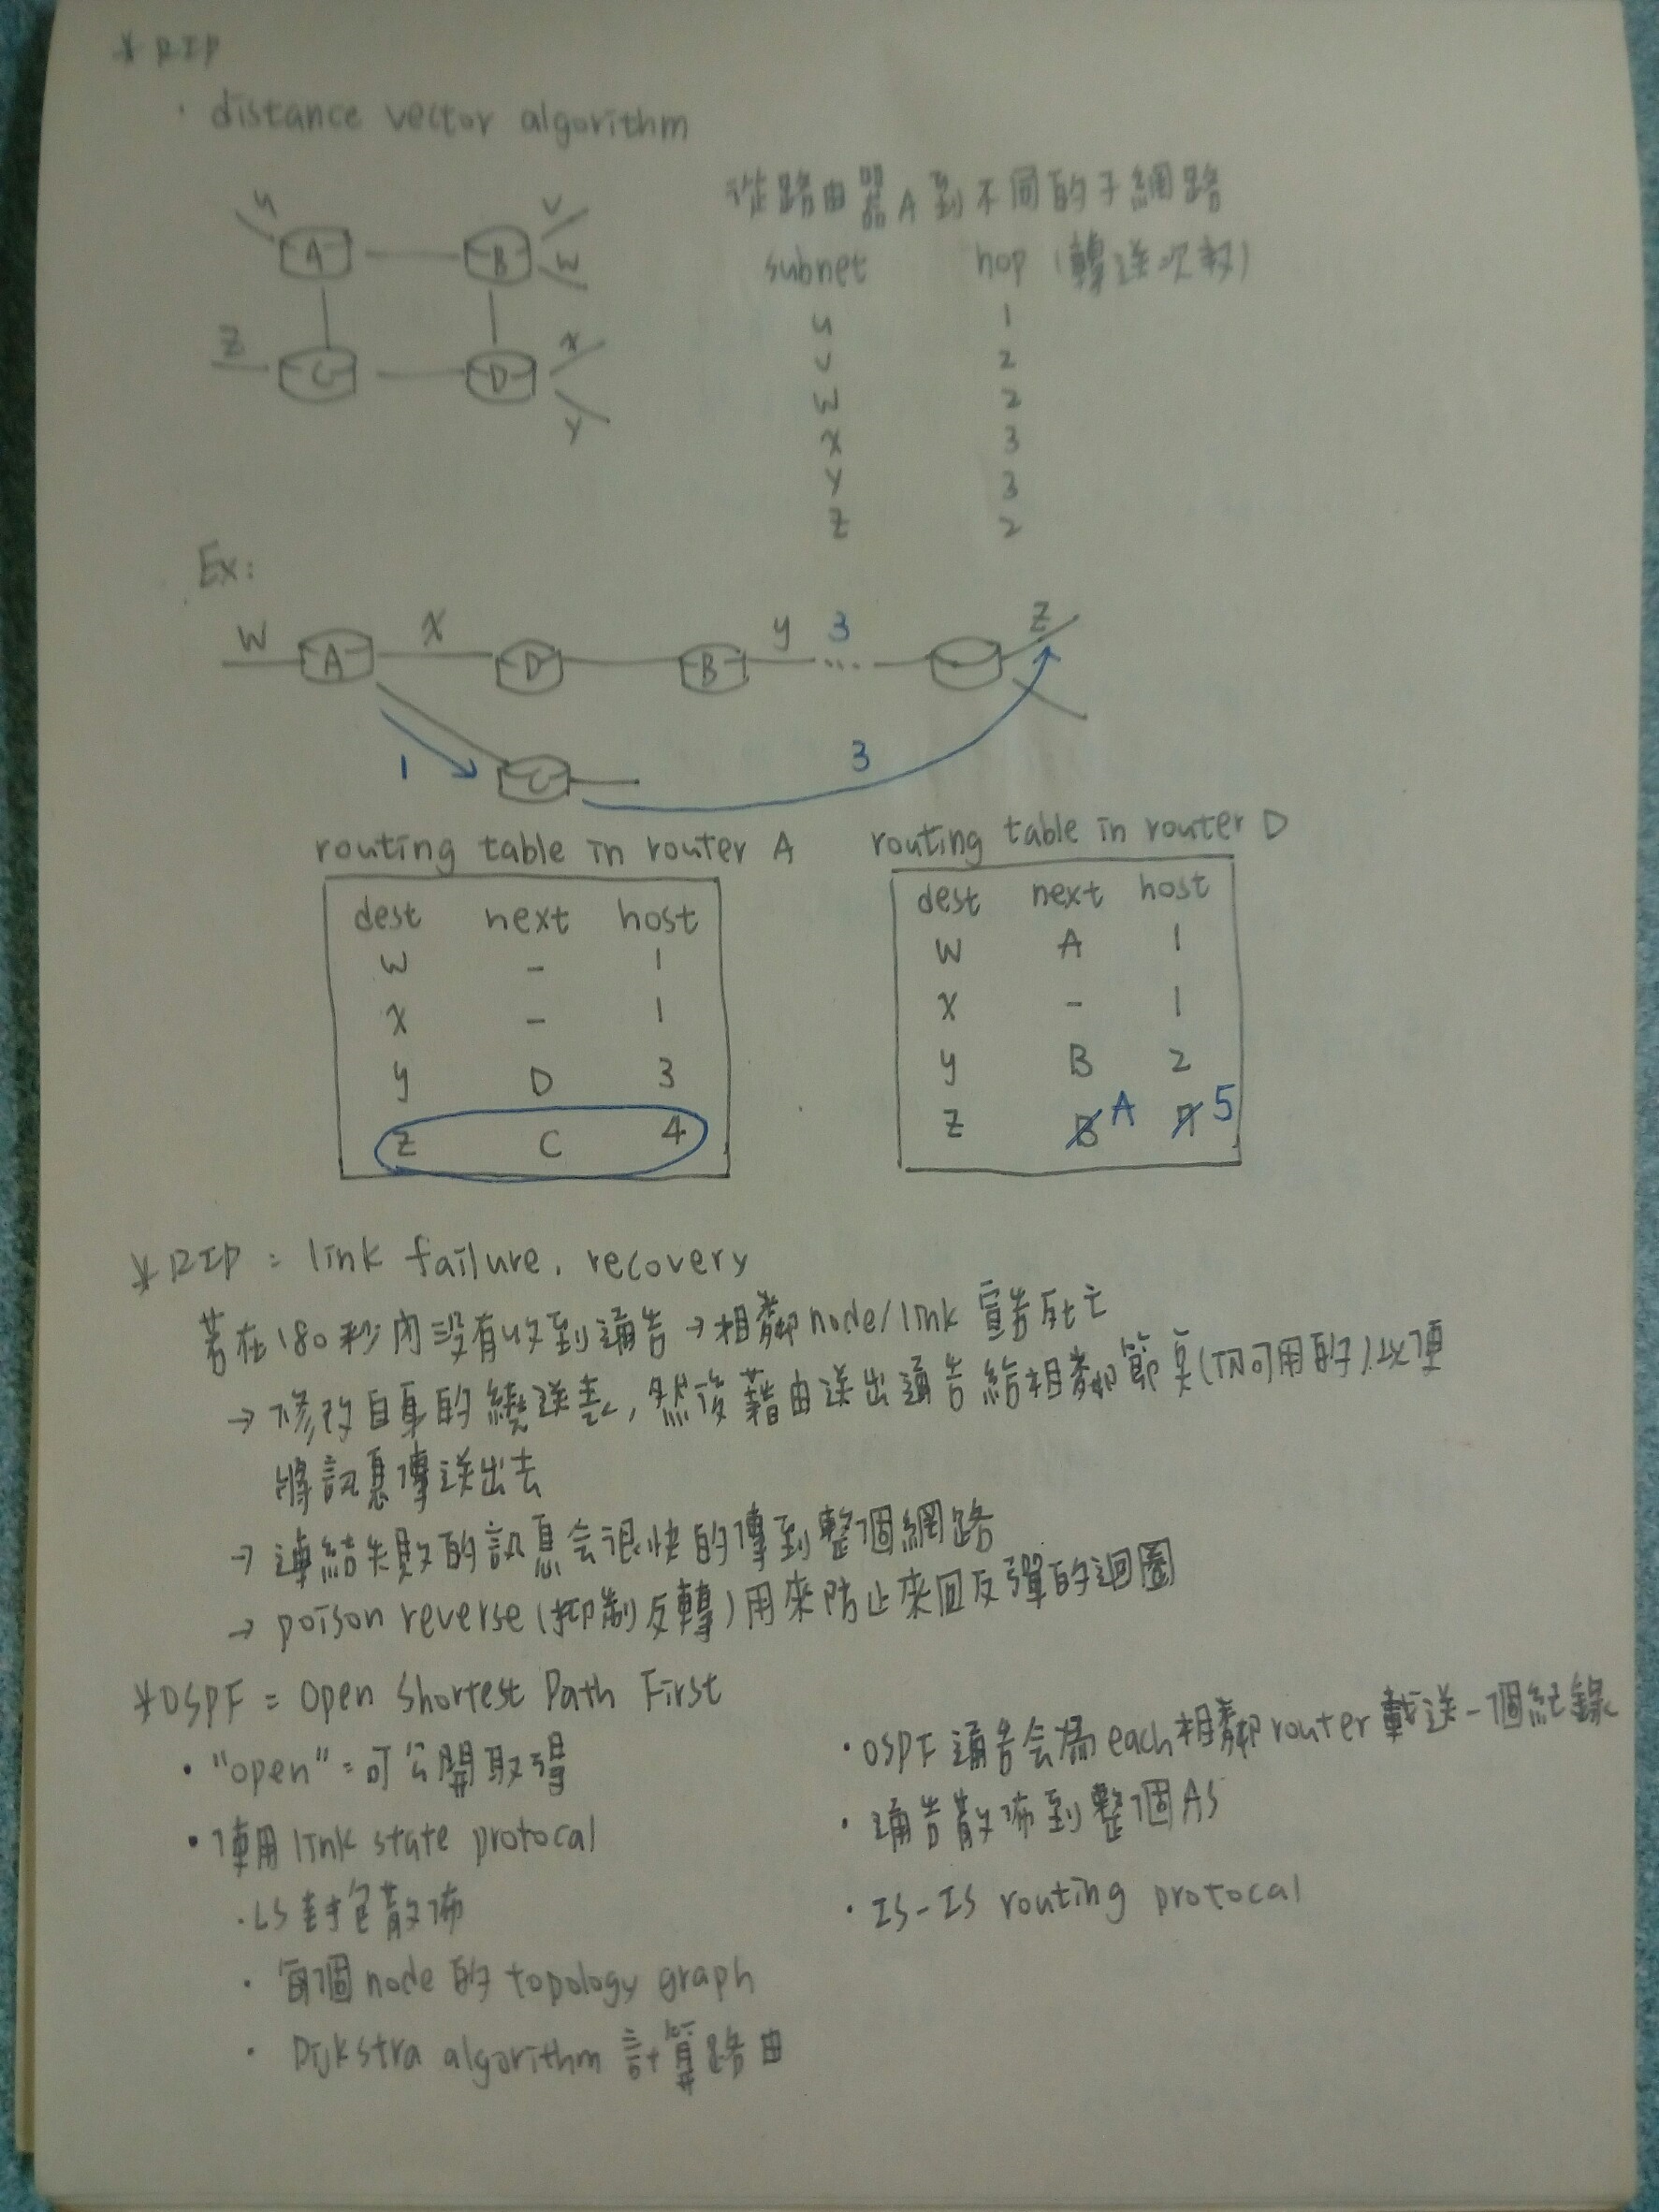 * RIP
· distance vector algorithm
u A B v w
z C D x y
從路由器A到不同的子網路
subnet hop (轉送次数)
u 1
v 2
w 2
x 3
y 3
z 2
Ex:
W A x D B y 3 ... z
1 C 3
routing table in router A
dest next host
w - 1
x - 1
y D 3
z C 4
routing table in router D
dest next host
w A 1
x - 1
y B 2
z B A 7 5
* RIP = link failure, recovery
若在180秒內沒有收到通告 → 相鄰node/link 宣告死亡
→ 修改自身的繞送表, 然後藉由送出通告給相鄰節點(仍可用的)以便
將訊息傳送出去
→ 連結失敗的訊息会很快的傳到整個網路
→ poison reverse (抑制反轉) 用來防止來回反彈的迴圈
* OSPF = Open Shortest Path First
· "open" = 可公開取得
· 使用 link state protocal
· LS封包散佈
· 每個node的topology graph
· Dijkstra algorithm 計算路由
· OSPF 通告会為each相鄰router載送一個紀錄
· 通告散佈到整個AS
· IS-IS routing protocal